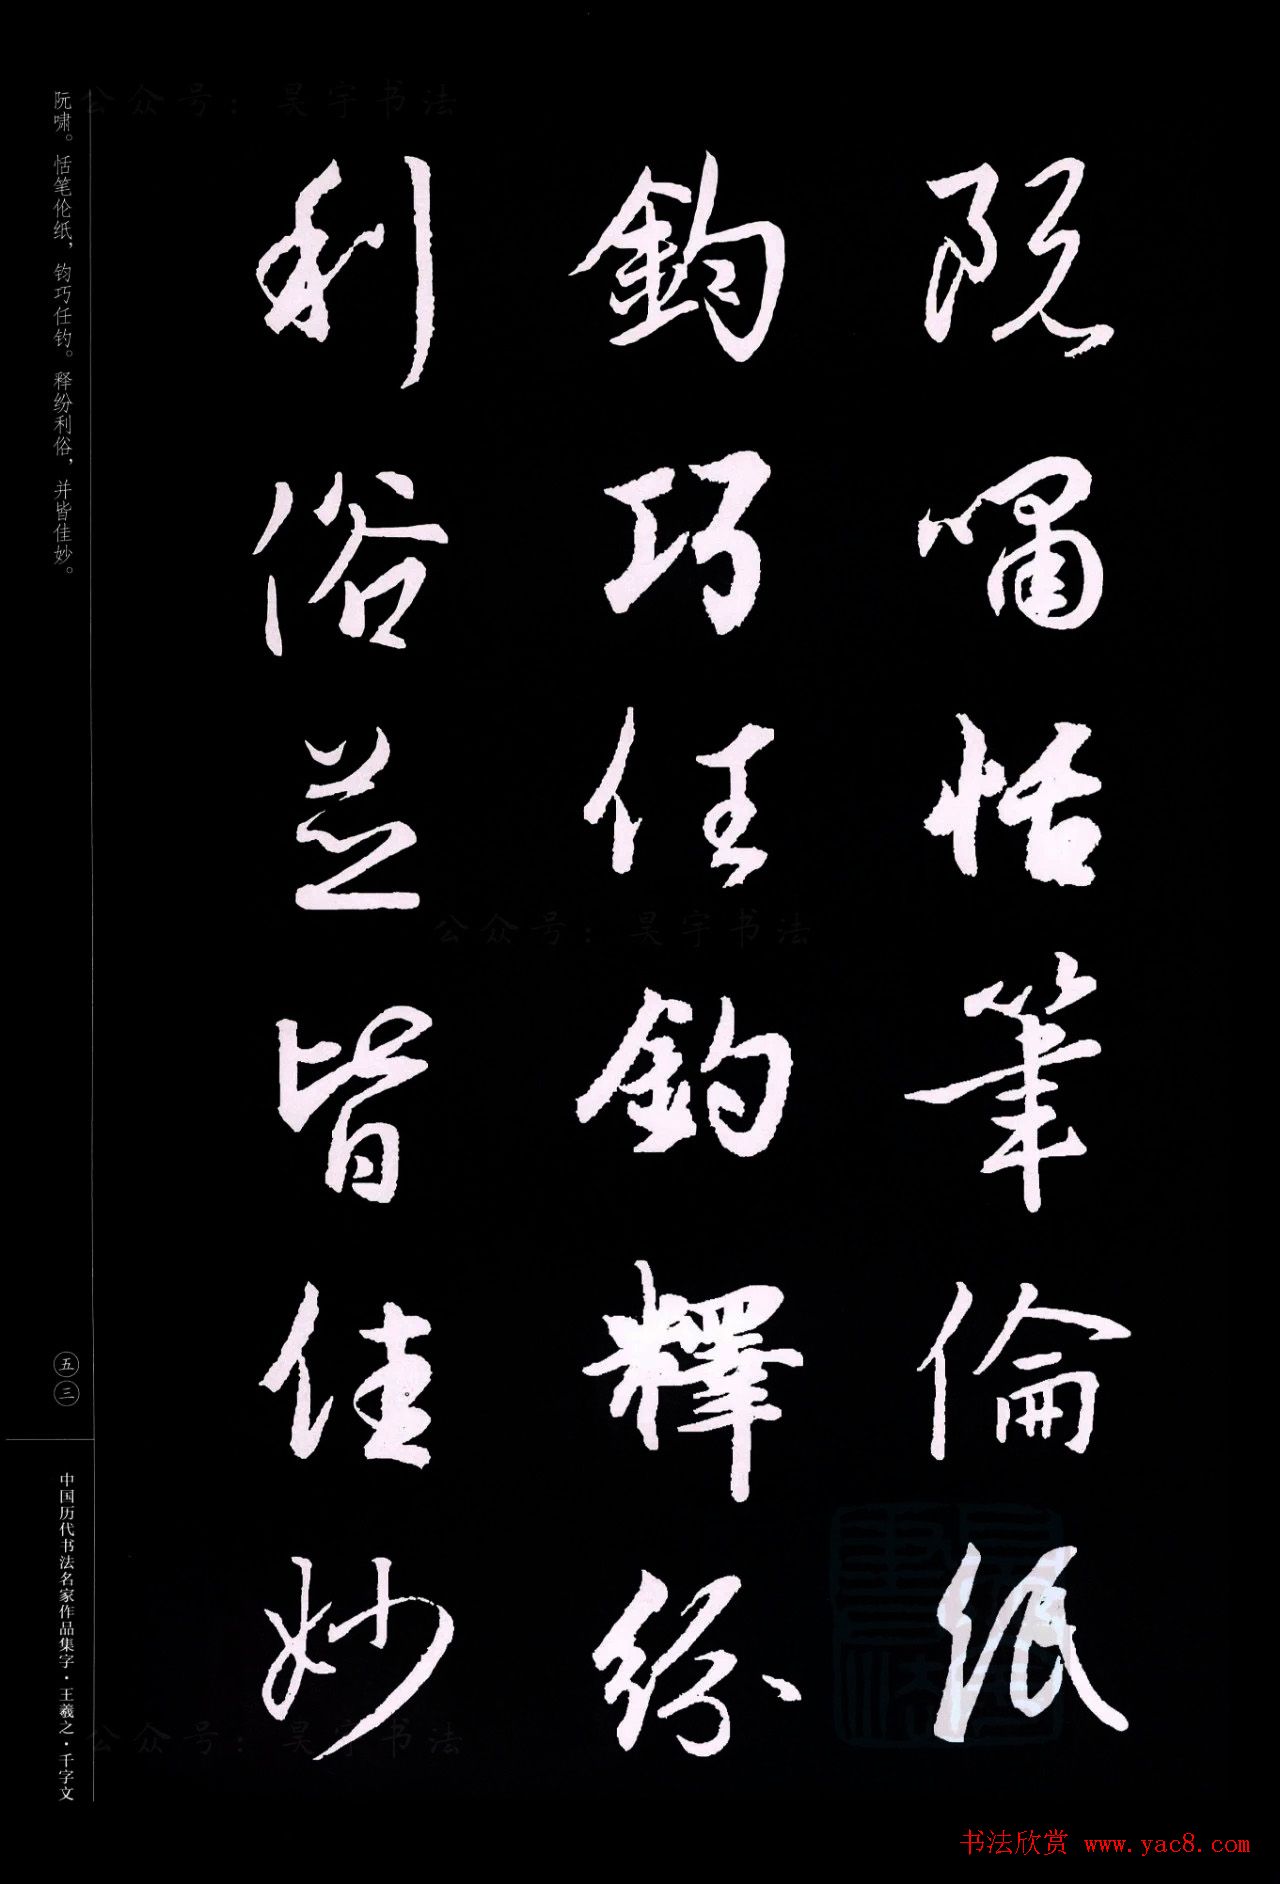 阮嘯恬筆倫紙
鈞巧任釣釋紛
利俗並皆佳妙
阮啸。恬笔伦纸，钧巧任钓。释纷利俗，并皆佳妙。
五三
中国历代书法名家作品集字·王羲之·千字文
公众号：昊宇书法
公众号：昊宇书法
公众号：昊宇书法
书法欣赏 www.yac8.com